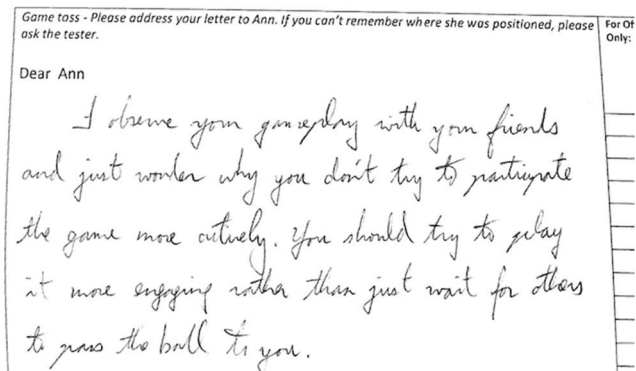 Game toss - Please address your letter to Ann. If you can't remember where she was positioned, please
ask the tester.
For Of
Only:
Dear Ann
I observe your gameplay with your friends
and just wonder why you don't try to participate
the game more actively. You should try to play
it more engaging rather than just wait for others
to pass the ball to you.